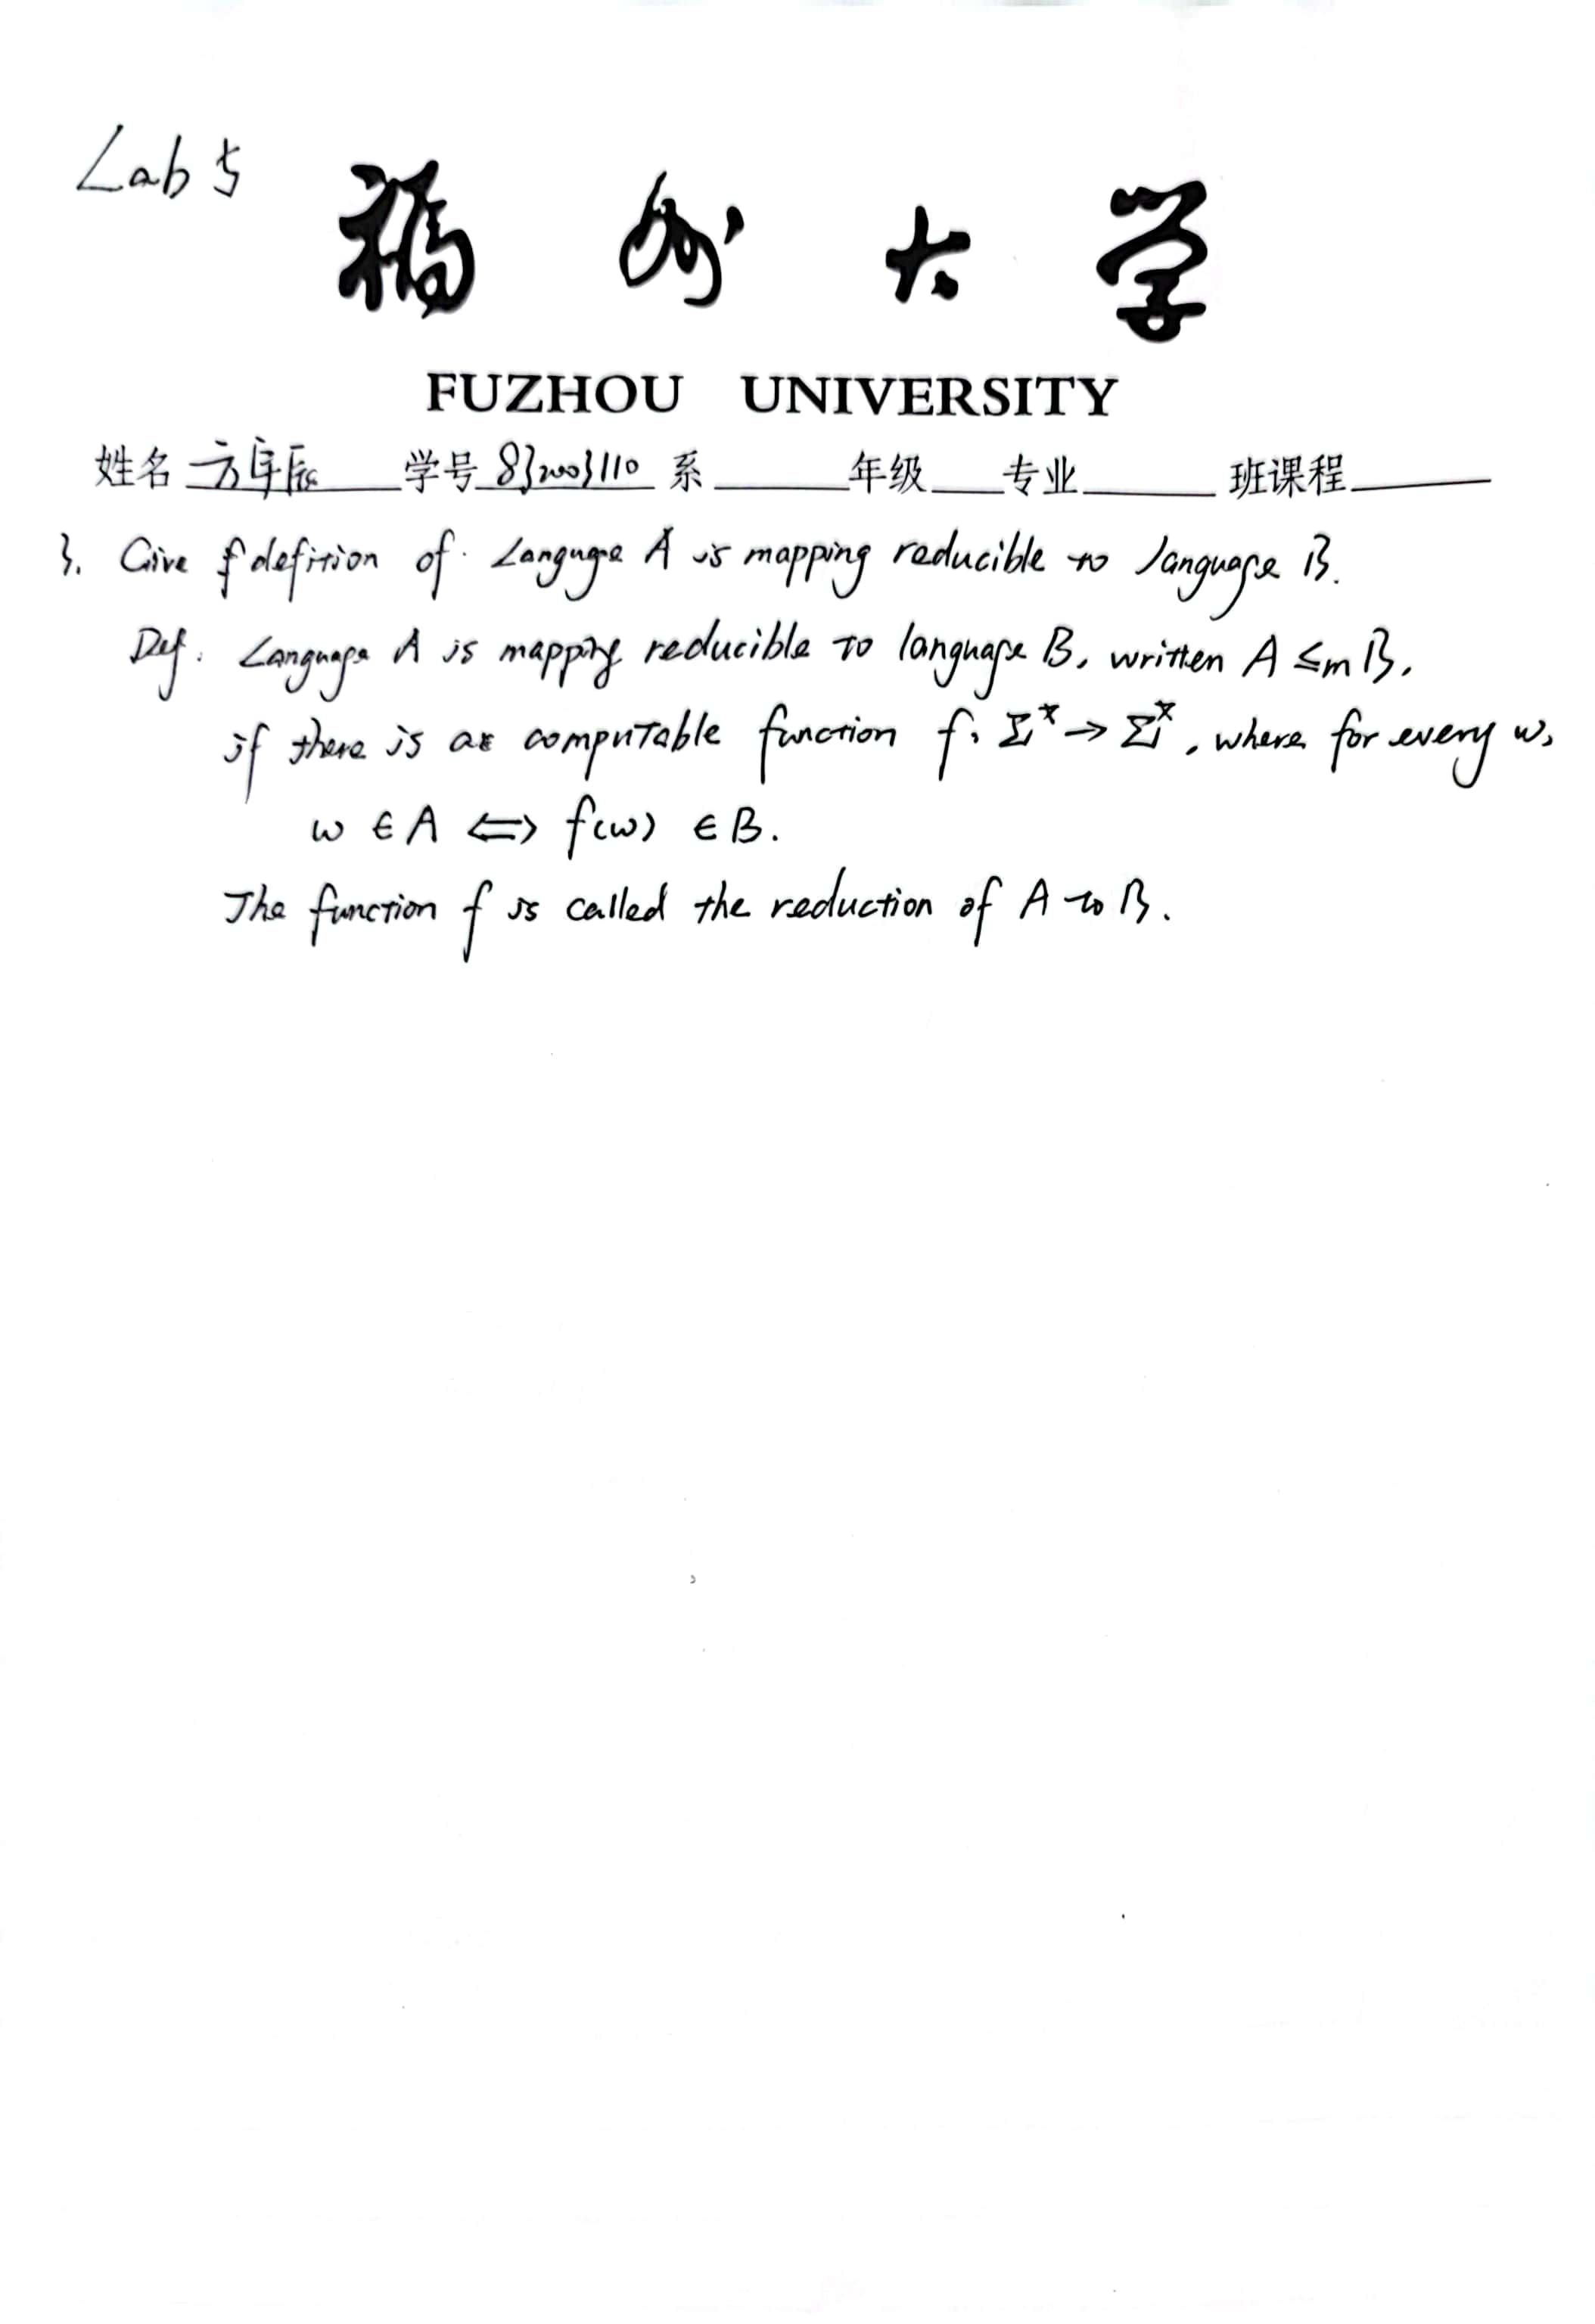 Lab 5
福州大学
FUZHOU UNIVERSITY
姓名 方 学号 832003110 系 年级 专业 班课程
3. Give defition of Languge A is mapping reducible to language B.
Def. Language A is mapping reducible to language B, written A ≤m B,
if there is a computable function f: Σ* → Σ*, where for every w,
w ∈ A ⟺ f(w) ∈ B.
The function f is called the reduction of A to B.